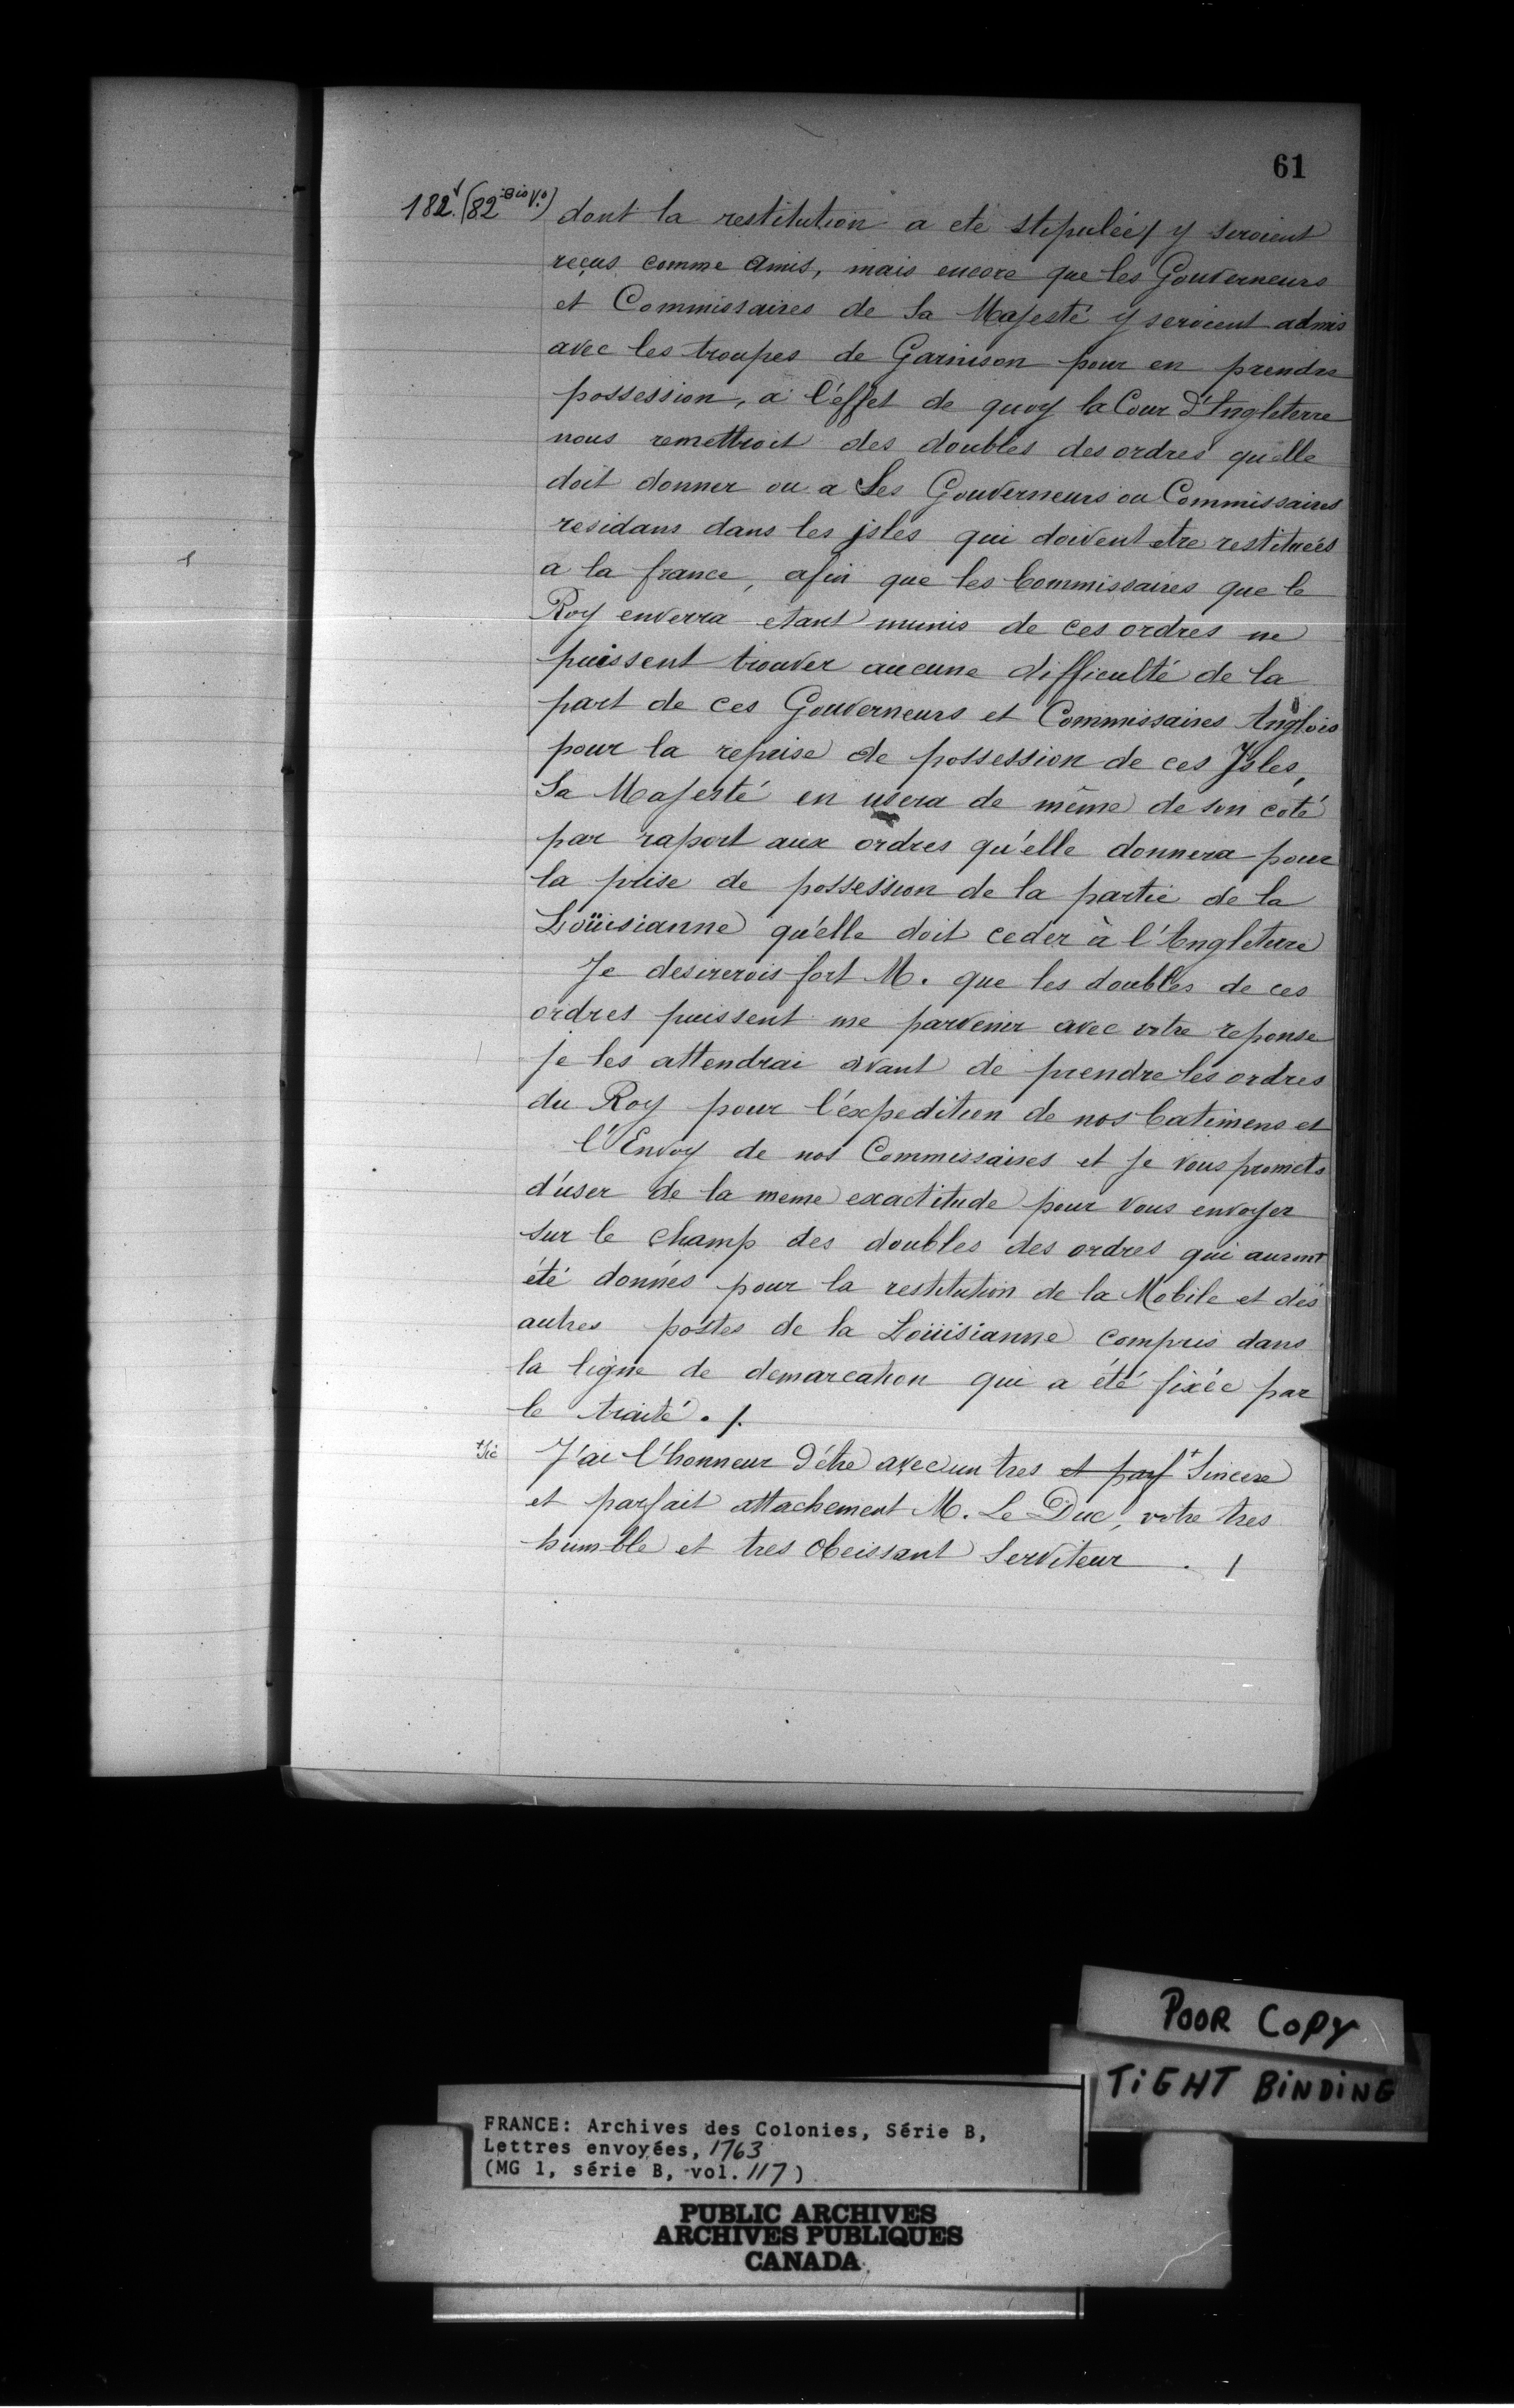 61
182v (82 bis V.o)
dont la restitution a eté stipulée / y seroient
reçus comme amis, mais encore que les Gouverneurs
et Commissaires de Sa Majesté y seroient admis
avec les troupes de Garnison pour en prendre
possession, a l'éffet de quoy la Cour d'Angleterre
nous remettroit des doubles des ordres qu'elle
doit donner ou a Ses Gouverneurs ou Commissaires
residans dans les isles qui doivent etre restitueés
a la france, afin que les Commissaires que le
Roy enverra etant munis de ces ordres ne
puissent trouver aucune difficulté de la
part de ces Gouverneurs et Commissaires Anglois
pour la reprise de possession de ces Isles,
Sa Majesté en usera de même de son coté
par raport aux ordres qu'elle donnera pour
la prise de possession de la partie de la
Loüisianne qu'elle doit ceder à l'Angleterre
Je desirerois fort M. que les doubles de ces
ordres puissent me parvenir avec votre reponse
je les attendrai avant de prendre les ordres
du Roy pour l'éxpedition de nos batimens et
l'Envoy de nos Commissaires et je vous promets
d'user de la meme exactitude pour vous envoyer
sur le champ des doubles des ordres qui auront
été donnés pour la restitution de la Mobile et des
autres postes de la Loüisianne compris dans
la ligne de demarcation qui a été fixée par
le traité . /.
+Sic
J'ai l'honneur d'être avec un tres et parf + Sincere
et parfait attachement M. Le Duc, votre tres
humble et tres obeissant Serviteur . /
POOR COPY
TIGHT BINDING
FRANCE: Archives des Colonies, Série B,
Lettres envoyées, 1763
(MG 1, série B, vol. 117)
PUBLIC ARCHIVES
ARCHIVES PUBLIQUES
CANADA